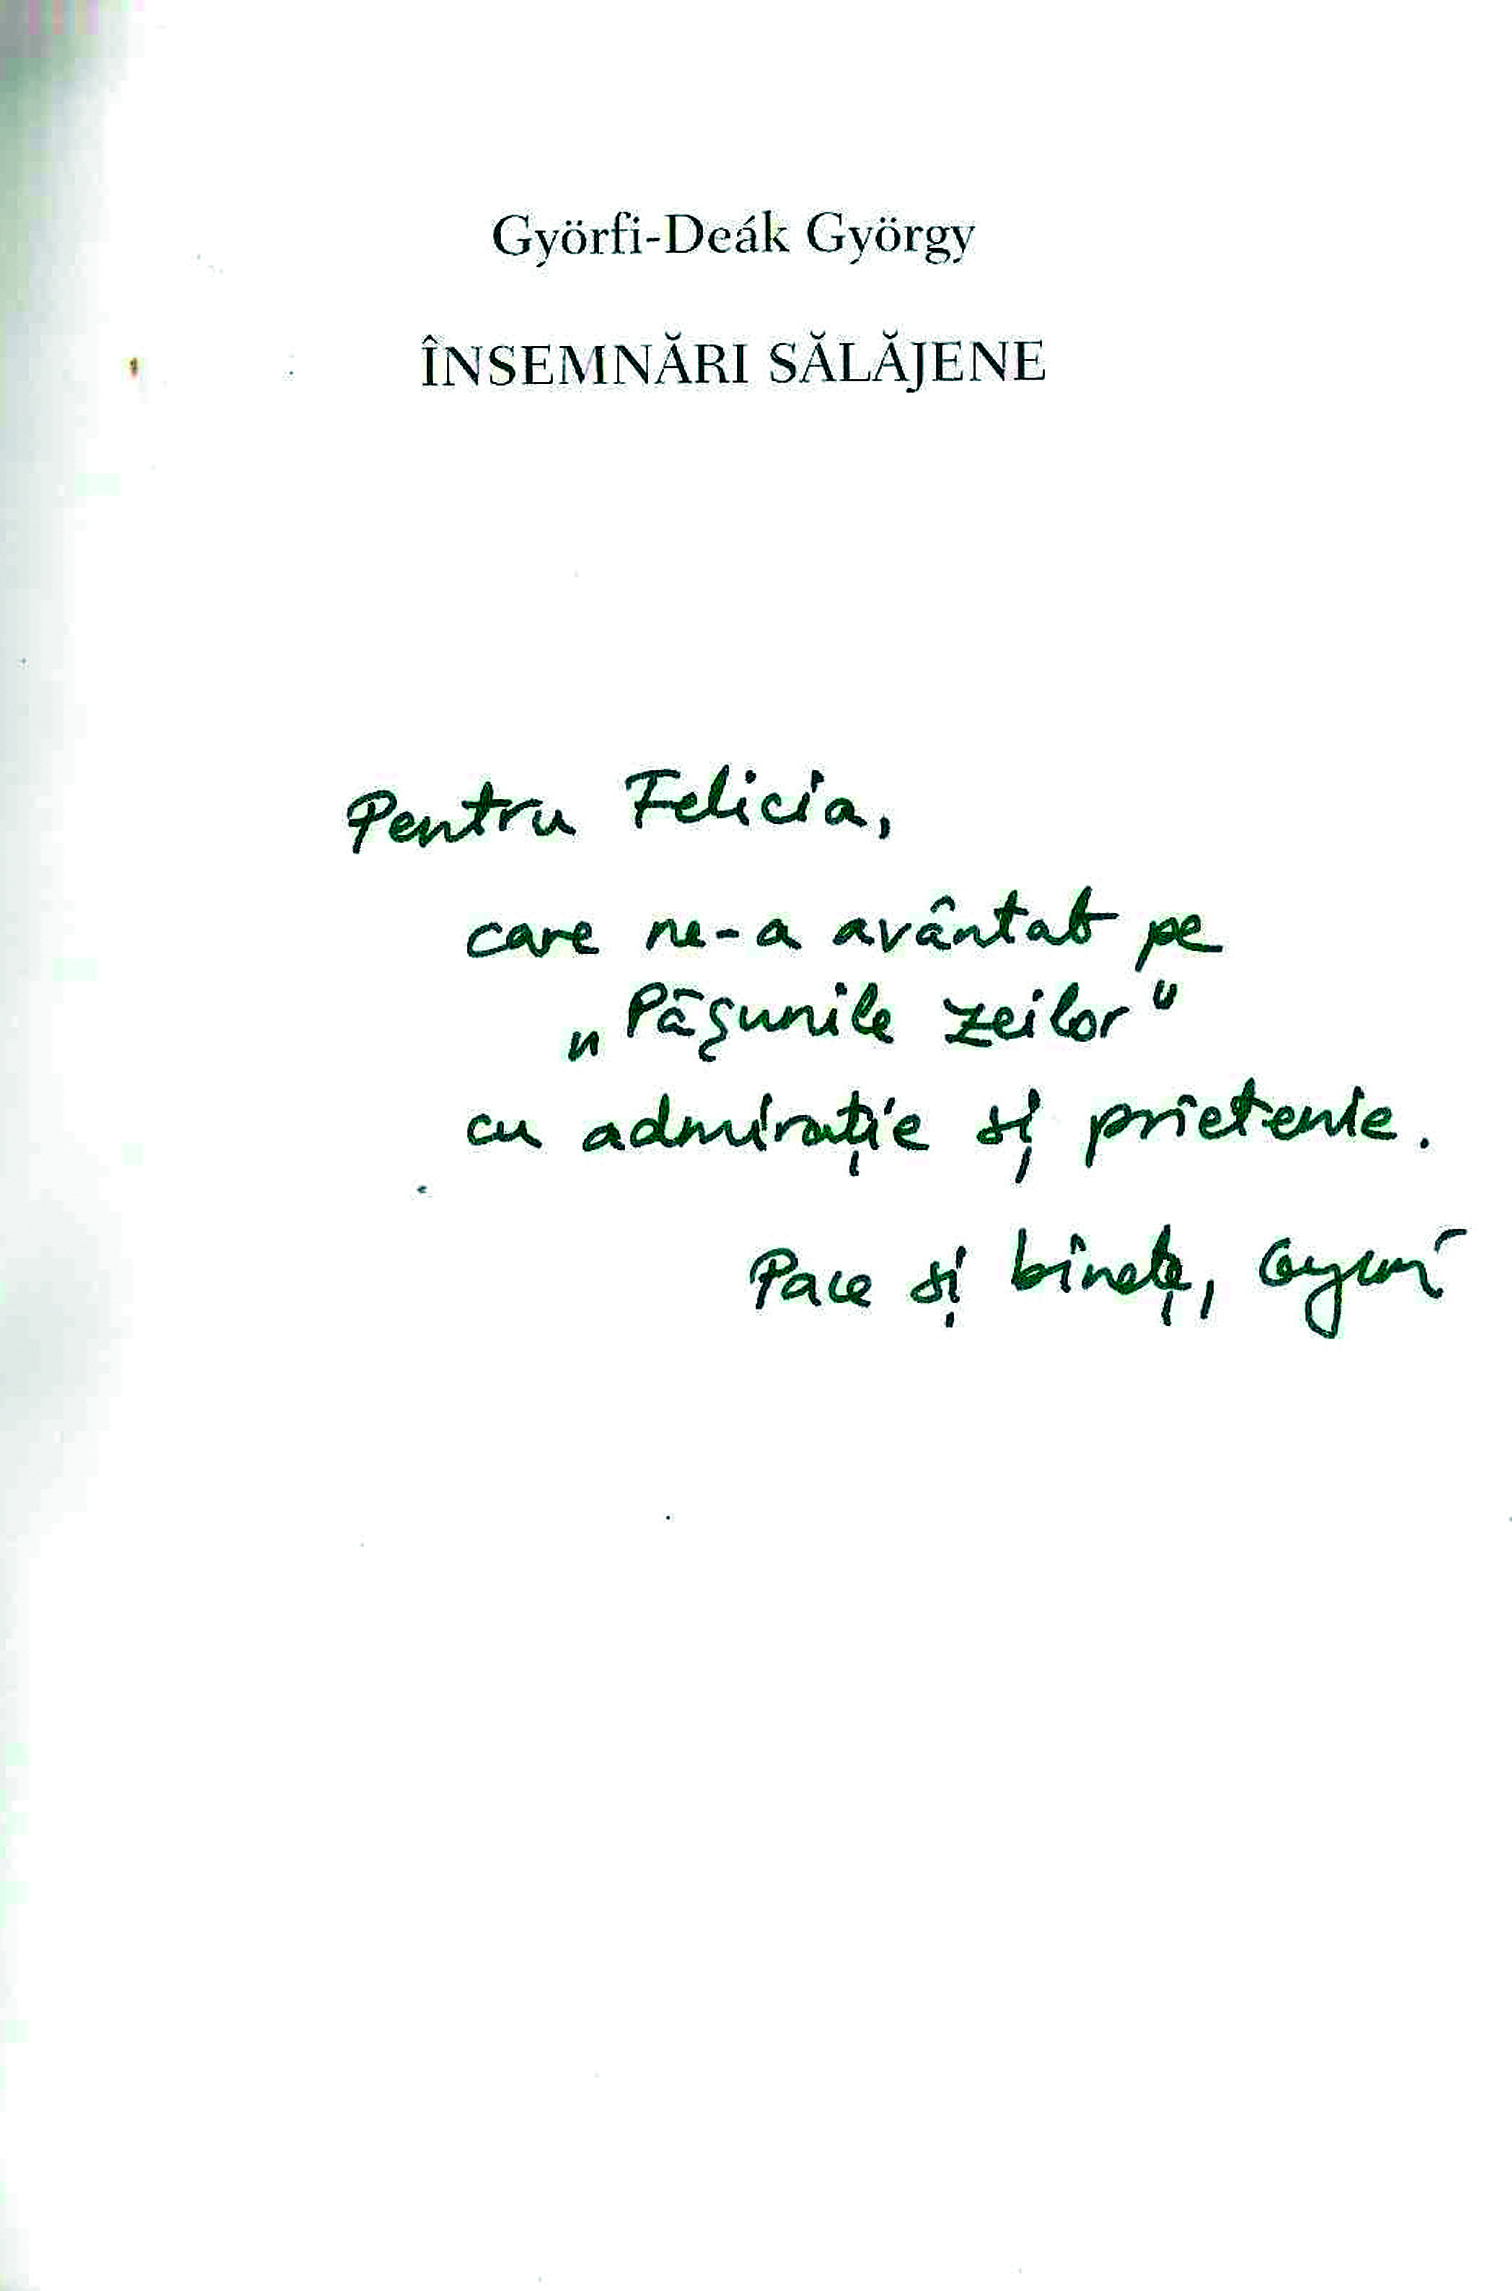 Györfi-Deák György
ÎNSEMNĂRI SĂLĂJENE
Pentru Felicia,
care ne-a avântat pe
„Pășunile zeilor"
cu admirație și prietenie.
Pace și binețe, Gyuri